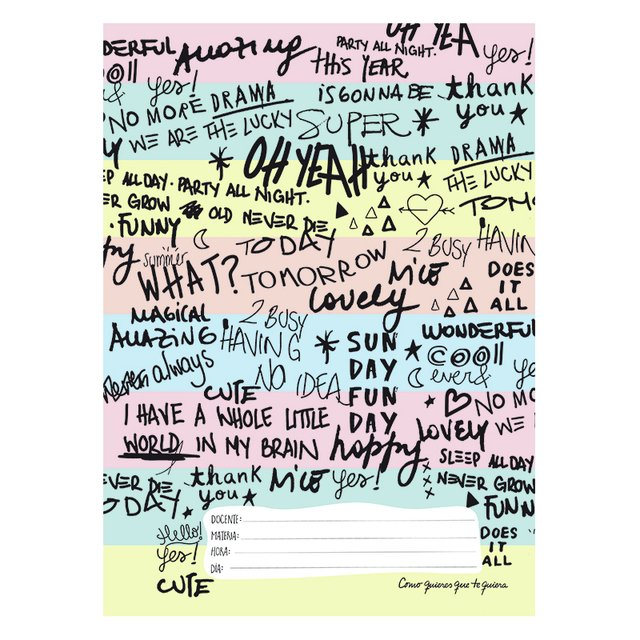 OH YEA
DERFUL AMAZING PARTY ALL NIGHT. yes!
COOll THIS YEAR
& yes! IS GONNA BE thank
NO MORE DRAMA you
WE ARE THE LUCKY SUPER
OH YEAH thank DRAMA
you THE LUCKY
EP ALL DAY · PARTY ALL NIGHT.
ER GROW OLD NEVER DIE TOMO
· FUNNY
ppy summer TODAY 2 BUSY HAVIN
WHAT? TOMORROW NICE DOES
lovely IT
ALL
MAGICAL 2 BUSY WONDERFUL
AMAZING HAVING SUN COOll
always NO IDEA DAY ever & ye
CUTE FUN NO MO
I HAVE A WHOLE LITTLE DAY lovely WE
WORLD IN MY BRAIN happy SLEEP ALL DAY
EVER DIE thank NICE yes! NEVER GROW
ODAY you FUNN
Hello! DOCENTE: DOES
yes! MATERIA: IT
HORA: ALL
CUTE DÍA:
Como quieres que te quiera